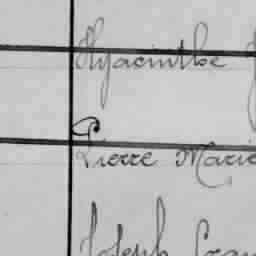 Hyacinthe
Pierre Marie
Joseph Fran